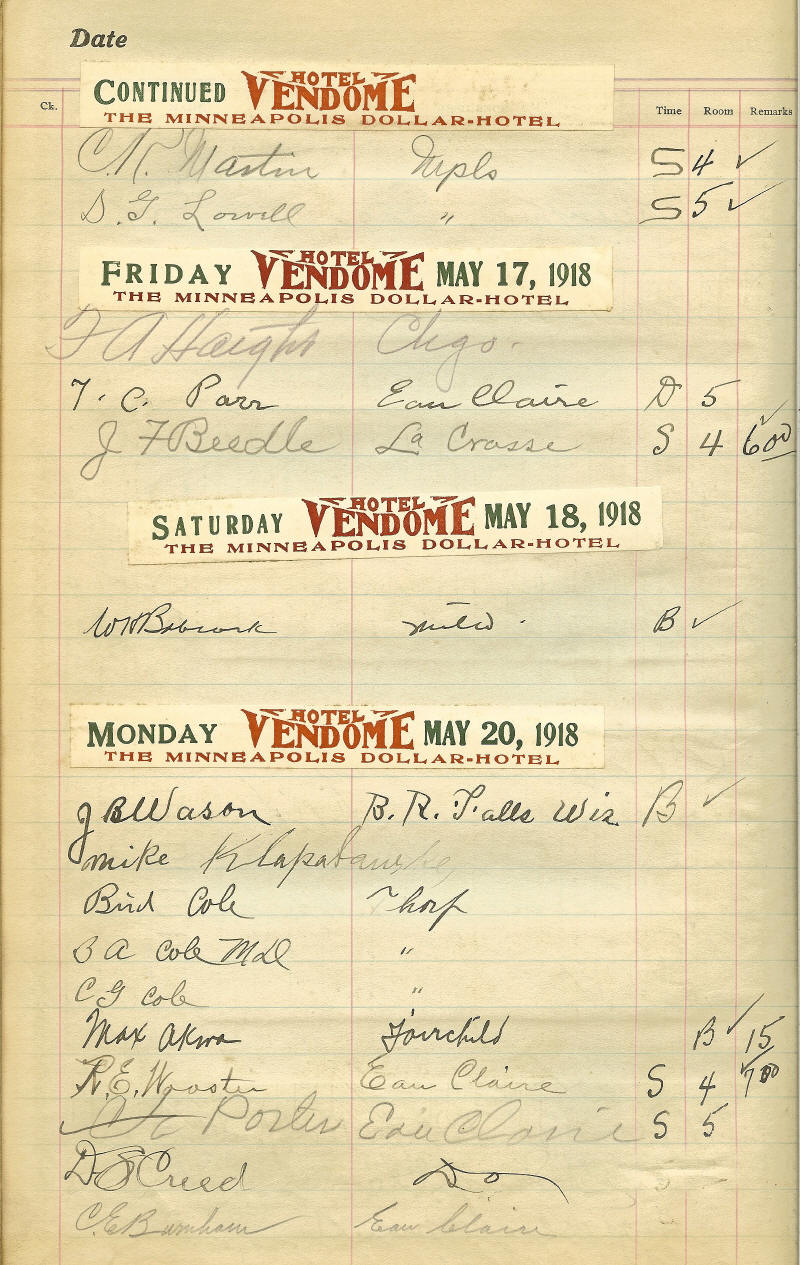 Date
CONTINUED HOTEL VENDOME
THE MINNEAPOLIS DOLLAR-HOTEL
Ck. Time Room Remarks
C.R. Martin Mpls S 4 ✓
D. G. Lowell " S 5 ✓
FRIDAY HOTEL VENDOME MAY 17, 1918
THE MINNEAPOLIS DOLLAR-HOTEL
F A Haight Chgo.
T. C. Parr Eau Claire D 5
J F Beedle La Crosse S 4 ✓ 6 00
SATURDAY HOTEL VENDOME MAY 18, 1918
THE MINNEAPOLIS DOLLAR-HOTEL
W H Babcock Milw. B ✓
MONDAY HOTEL VENDOME MAY 20, 1918
THE MINNEAPOLIS DOLLAR-HOTEL
J B Wason B. R. Falls Wis. B ✓
Mike
Bird Cole Thorp
B A Cole MD "
C G Cole "
Max Fairchild B ✓ 15
R. E. Wooster Eau Claire S 4 ✓ 7 00
Porter Eau Claire S 5
D S Creed Do
C. E. Burnham Eau Claire